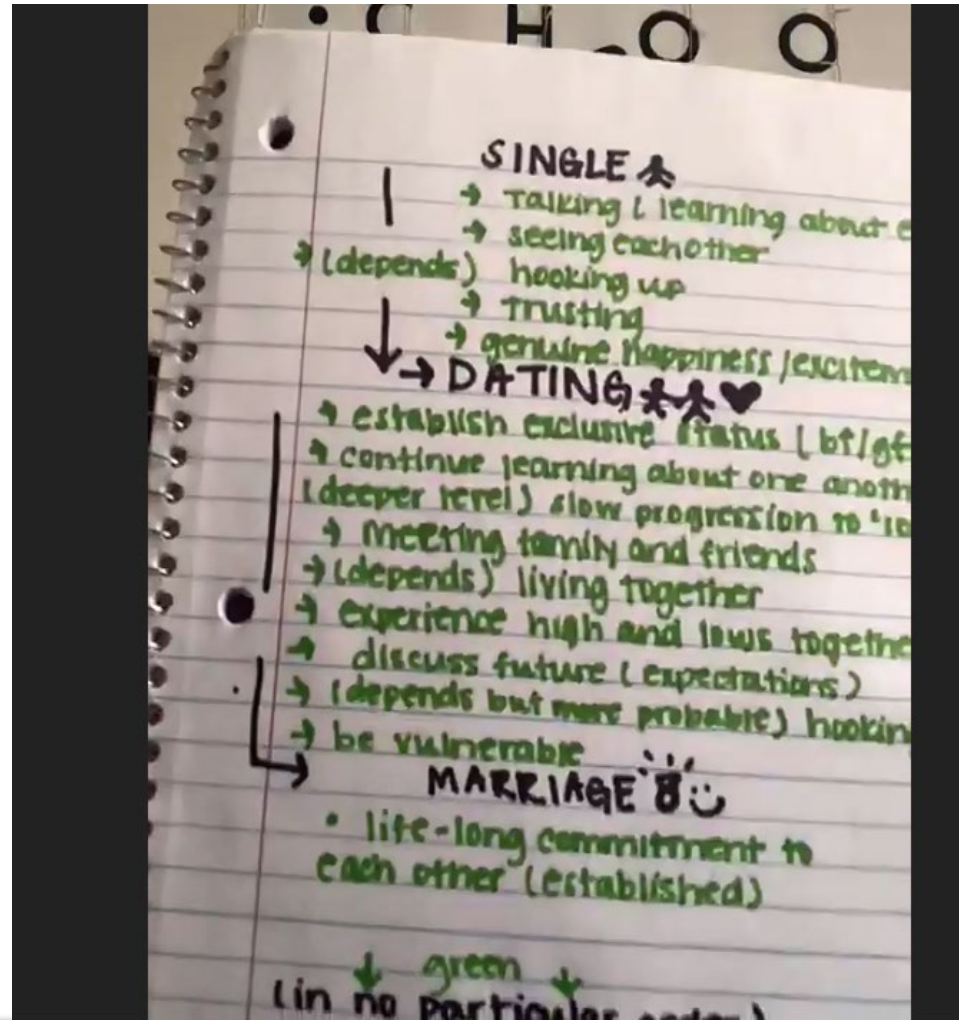 . C H . O O
SINGLE
→ Talking ( learning about e
→ seeing eachother
→ (depends) hooking up
→ Trusting
→ genuine happiness / excitem
→ DATING
→ establish exclusive status ( bf/gf
→ continue learning about one anoth
(deeper level) slow progression to "lo
→ meeting family and friends
→ (depends) living together
→ experience high and lows togethe
→ discuss future ( expectations )
→ (depends but more probable) hookin
→ be vulnerable
MARRIAGE
• life-long commitment to
each other (established)
↓ green ↓
(in no particular order)